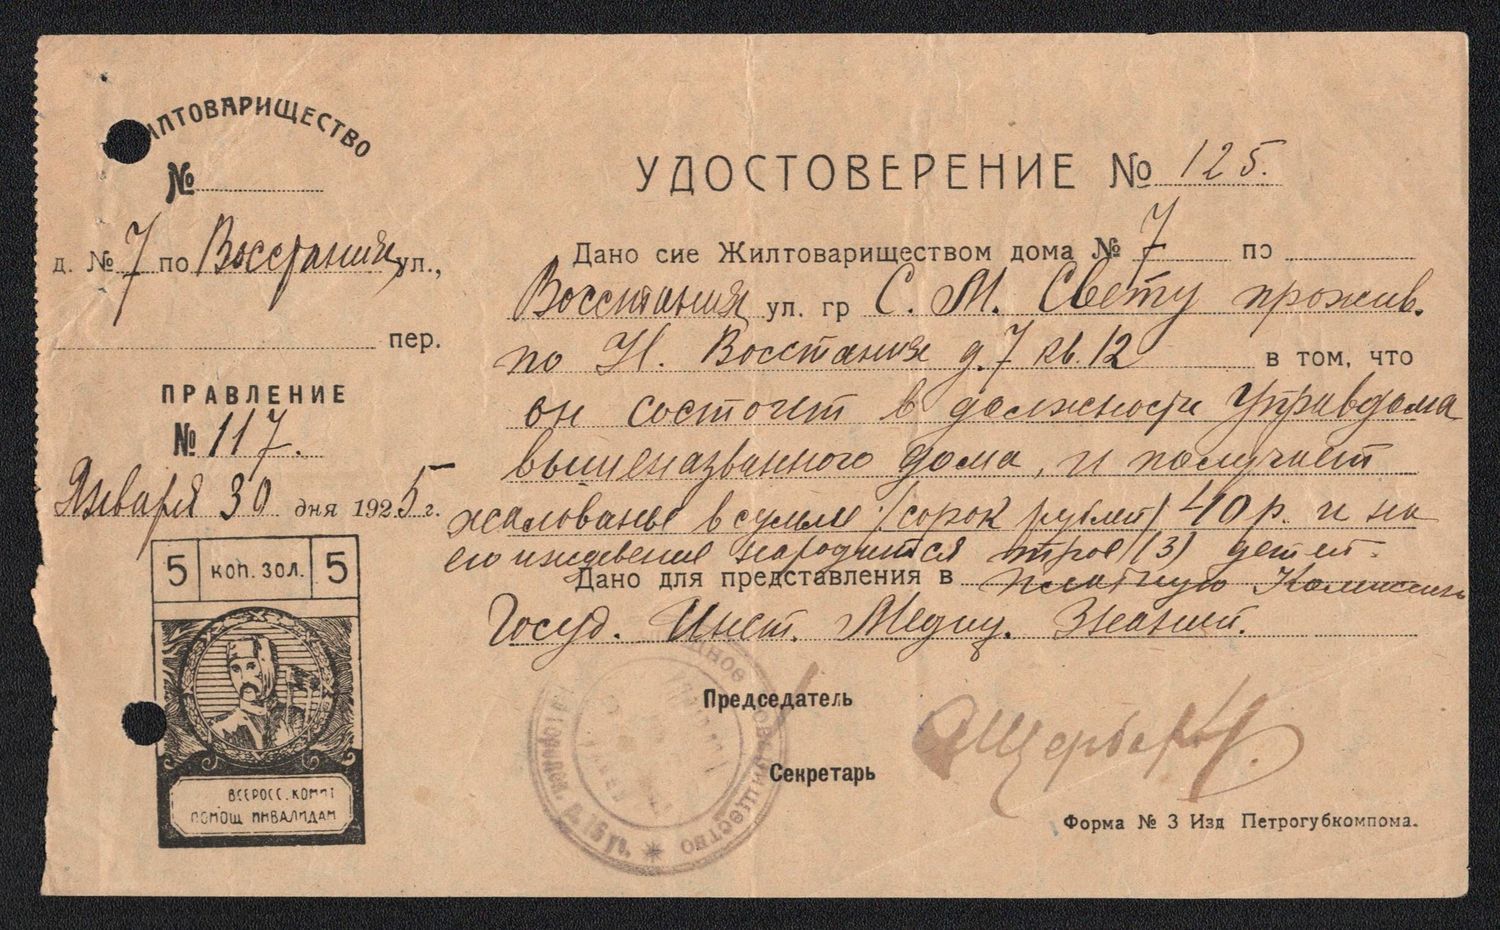 ЖИЛТОВАРИЩЕСТВО
№
д. № 7 по Восстания ул.,
пер.
ПРАВЛЕНИЕ
№ 117.
Января 30 дня 1925 г.
5 КОП. ЗОЛ. 5
ВСЕРОСС. КОМИТ
ПОМОЩ ИНВАЛИДАМ
УДОСТОВЕРЕНИЕ № 125.
Дано сие Жилтовариществом дома № 7 по
Восстания ул. гр С. М. Свету прожив.
по Н. Восстания д. 7 кв. 12 в том, что
он состоит в должности Управдома
вышеназванного дома, и получает
жалованье в сумме /сорок рублей/ 40 р. и на
его иждевение находится трое (3) детей.
Дано для представления в платную Комиссию
Госуд. Инст. Медиц. Знаний.
Председатель
Секретарь
Форма № 3 Изд Петрогубкомпома.